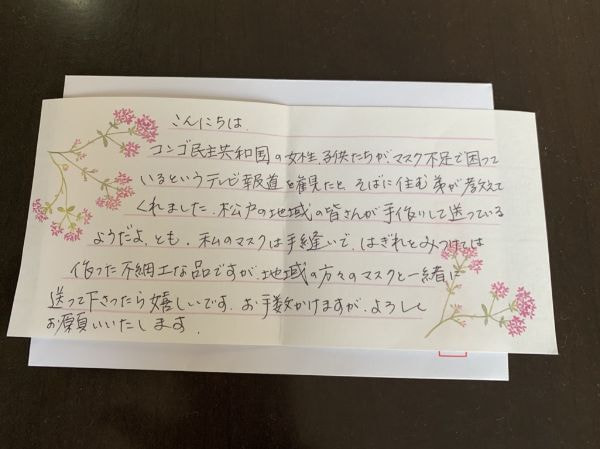 こんにちは.
コンゴ民主共和国の女性、子供たちが、マスク不足で困って
いるというテレビ報道を観たと、そばに住む弟が教えて
くれました.松戸の地域の皆さんが手作りして送っている
ようだよ、とも.私のマスクは手縫いで、はぎれをみつけては
作った不細工な品ですが、地域の方々のマスクと一緒に
送って下さったら嬉しいです.お手数かけますが、よろしく
お願いいたします.